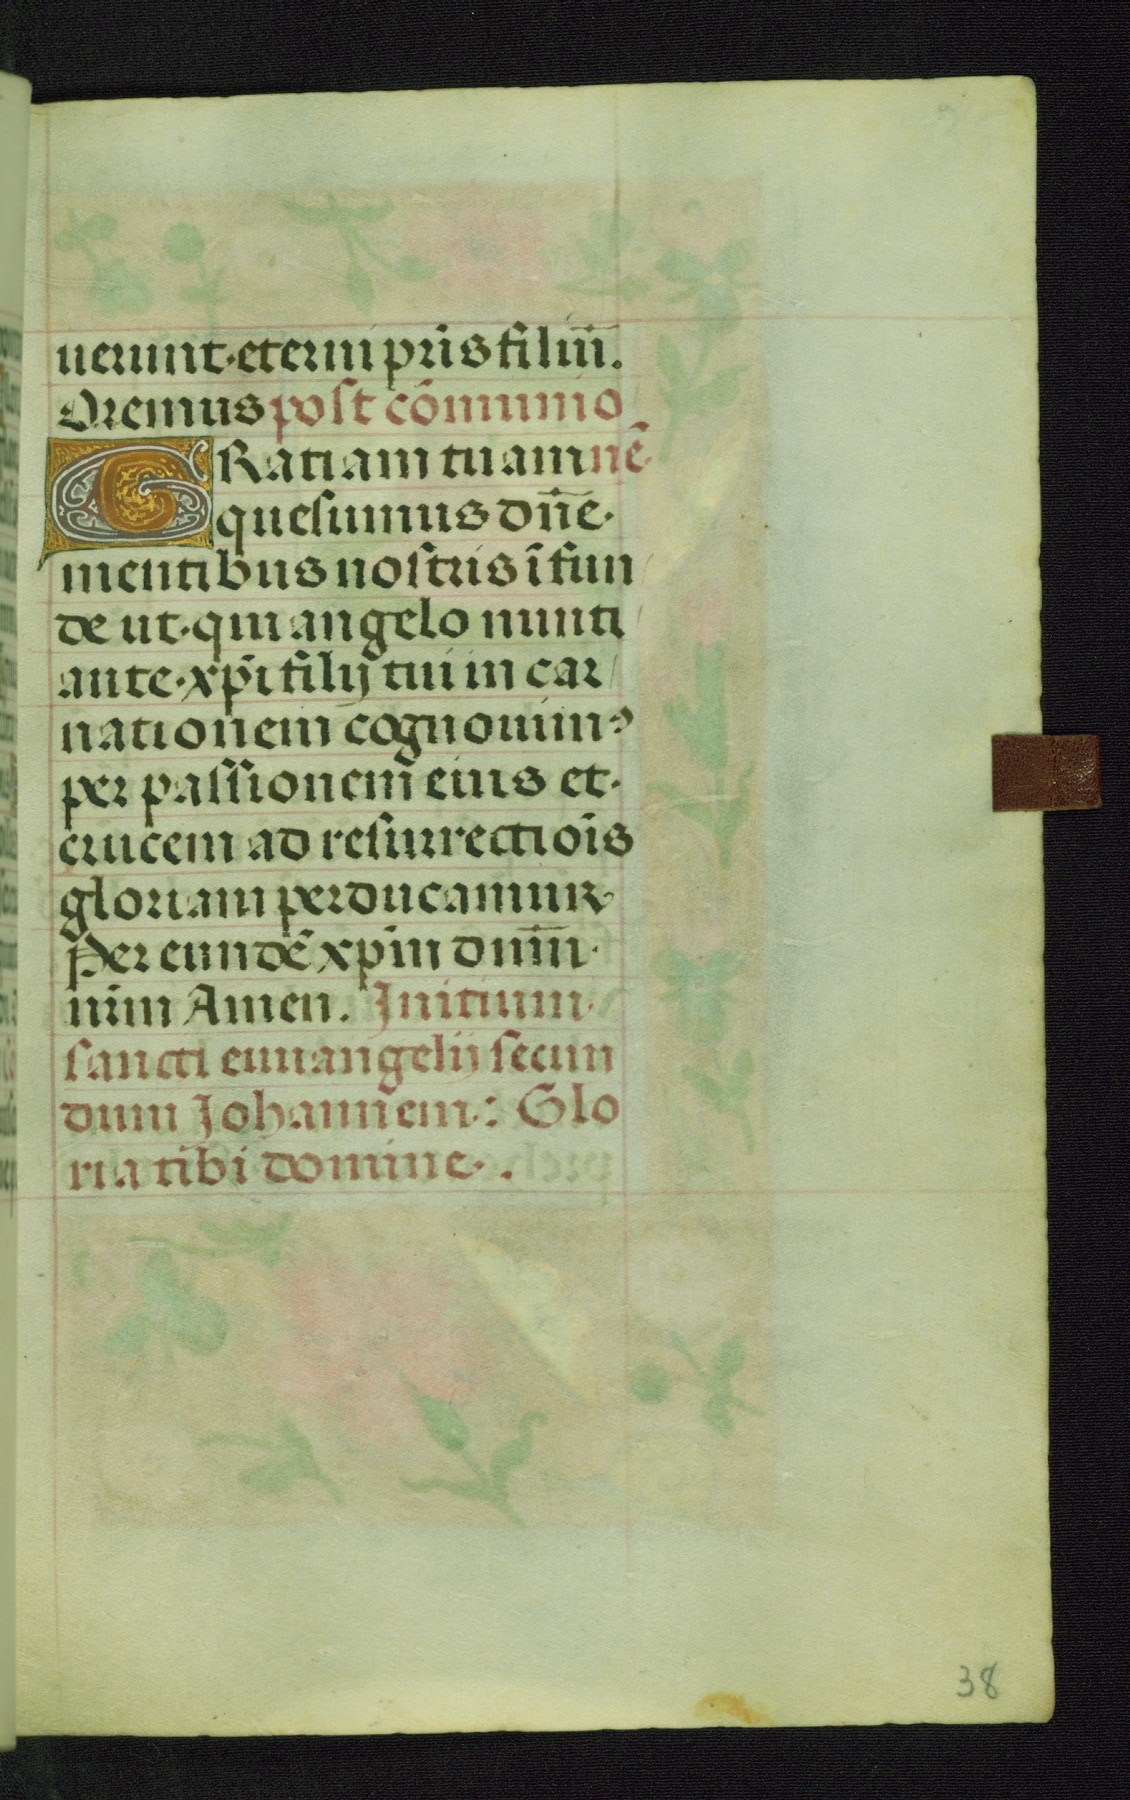 uerunt·eterni pr̄is filiū̄.
Oremus post cōmunio
GRatiam tuam nē
quesumus dn̄e·
mentibus nostris īfun
de ut·qui angelo nunti
ante·xp̄i filij tui in car
nationem cognouim᾿
per passionem̄ eius et·
crucem ad resurrectiōis
gloriam perducamur·
Per eundē xp̄m dnm̄·
nr̄m Amen. Initium·
sancti euuangelij secun
dum Johannem·: Glo
ria tibi domine·.
38